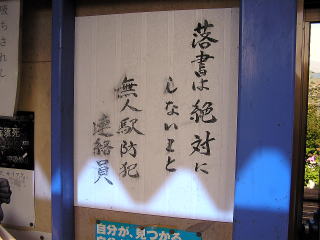 落書は絶対に
しないこと
無人駅防犯
連絡員
自分が、見つかる